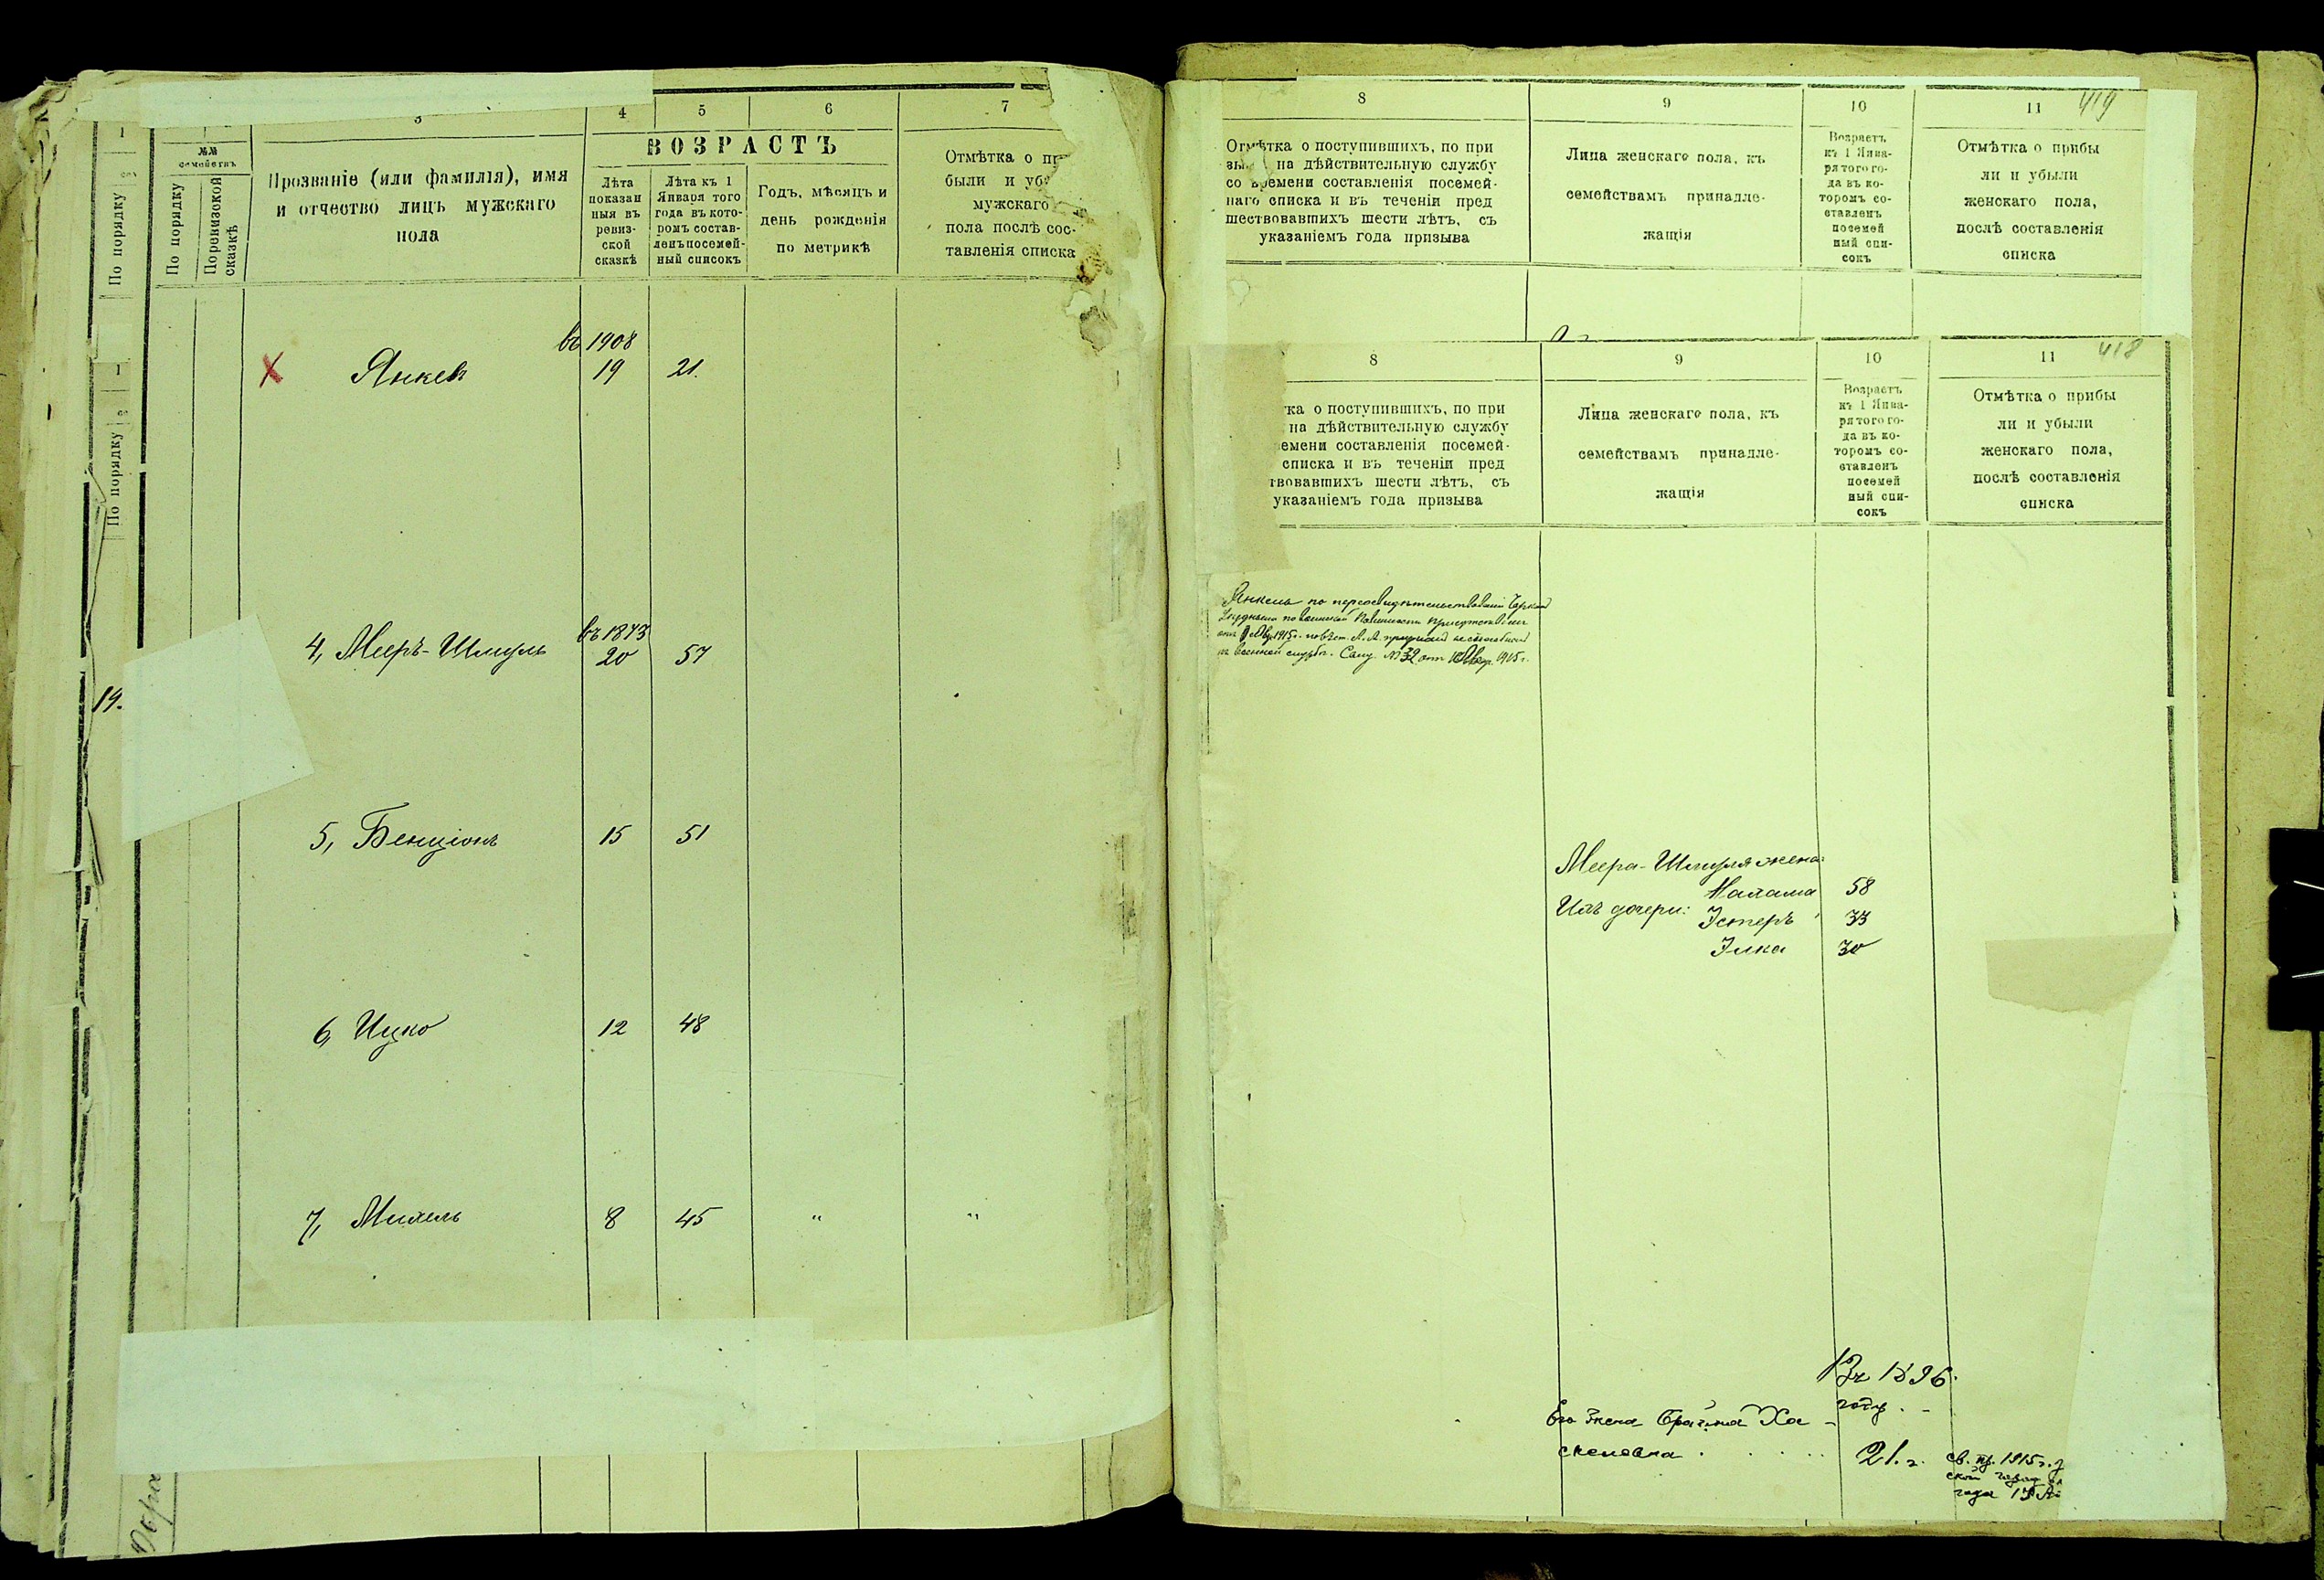 3
4
5
6
7
По порядку
№№
семействъ
По порядку
По ревизской
сказкѣ
Прозваніе (или фамилія), имя
и отчество лицъ мужскаго
пола
ВОЗРАСТЪ
Лѣта
показан
ныя въ
ревиз-
ской
сказкѣ
Лѣта къ 1
Января того
года въ кото-
ромъ состав-
ленъ посемей-
ный списокъ
Годъ, мѣсяцъ и
день рожденія
по метрикѣ
Отмѣтка о
были и
мужскаго
пола послѣ сос-
тавленія списка
1
По порядку
19.
въ 1908
Янкев 19 21.
въ 1873
4, Мееръ-Шмуль 20 57
5, Бенціонъ 15 51
6, Ицко 12 48
7, Михель 8 45 " "
8
9
10
11
419
Отмѣтка о поступившихъ, по при
на дѣйствительную службу
со времени составленія посемей-
наго списка и въ теченіи пред
шествовавшихъ шести лѣтъ, съ
указаніемъ года призыва
Лица женскаго пола, къ
семействамъ принадле-
жащія
Возрастъ
къ 1 Янва-
ря того го-
да въ ко-
торомъ со-
ставленъ
посемей
ный спи-
сокъ
Отмѣтка о прибы
ли и убыли
женскаго пола,
послѣ составленія
списка
8
9
10
11
418
о поступившихъ, по при
на дѣйствительную службу
составленія посемей-
списка и въ теченіи пред
шести лѣтъ, съ
указаніемъ года призыва
Лица женскаго пола, къ
семействамъ принадле-
жащія
Возрастъ
къ 1 Янва-
ря того го-
да въ ко-
торомъ со-
ставленъ
посемей
ный спи-
сокъ
Отмѣтка о прибы
ли и убыли
женскаго пола,
послѣ составленія
списка
Янкель по переосвидѣтельствованіи
по воинской Повинности
1915 г.
военной службѣ. 1915 г.
Меера-Шмуля жена:
Малама 58
Ихъ дочери: Эстеръ 33
Элка 30
Въ 1896
году.
Его жена Ха-
скелевна 21 г.
1915 г.
года